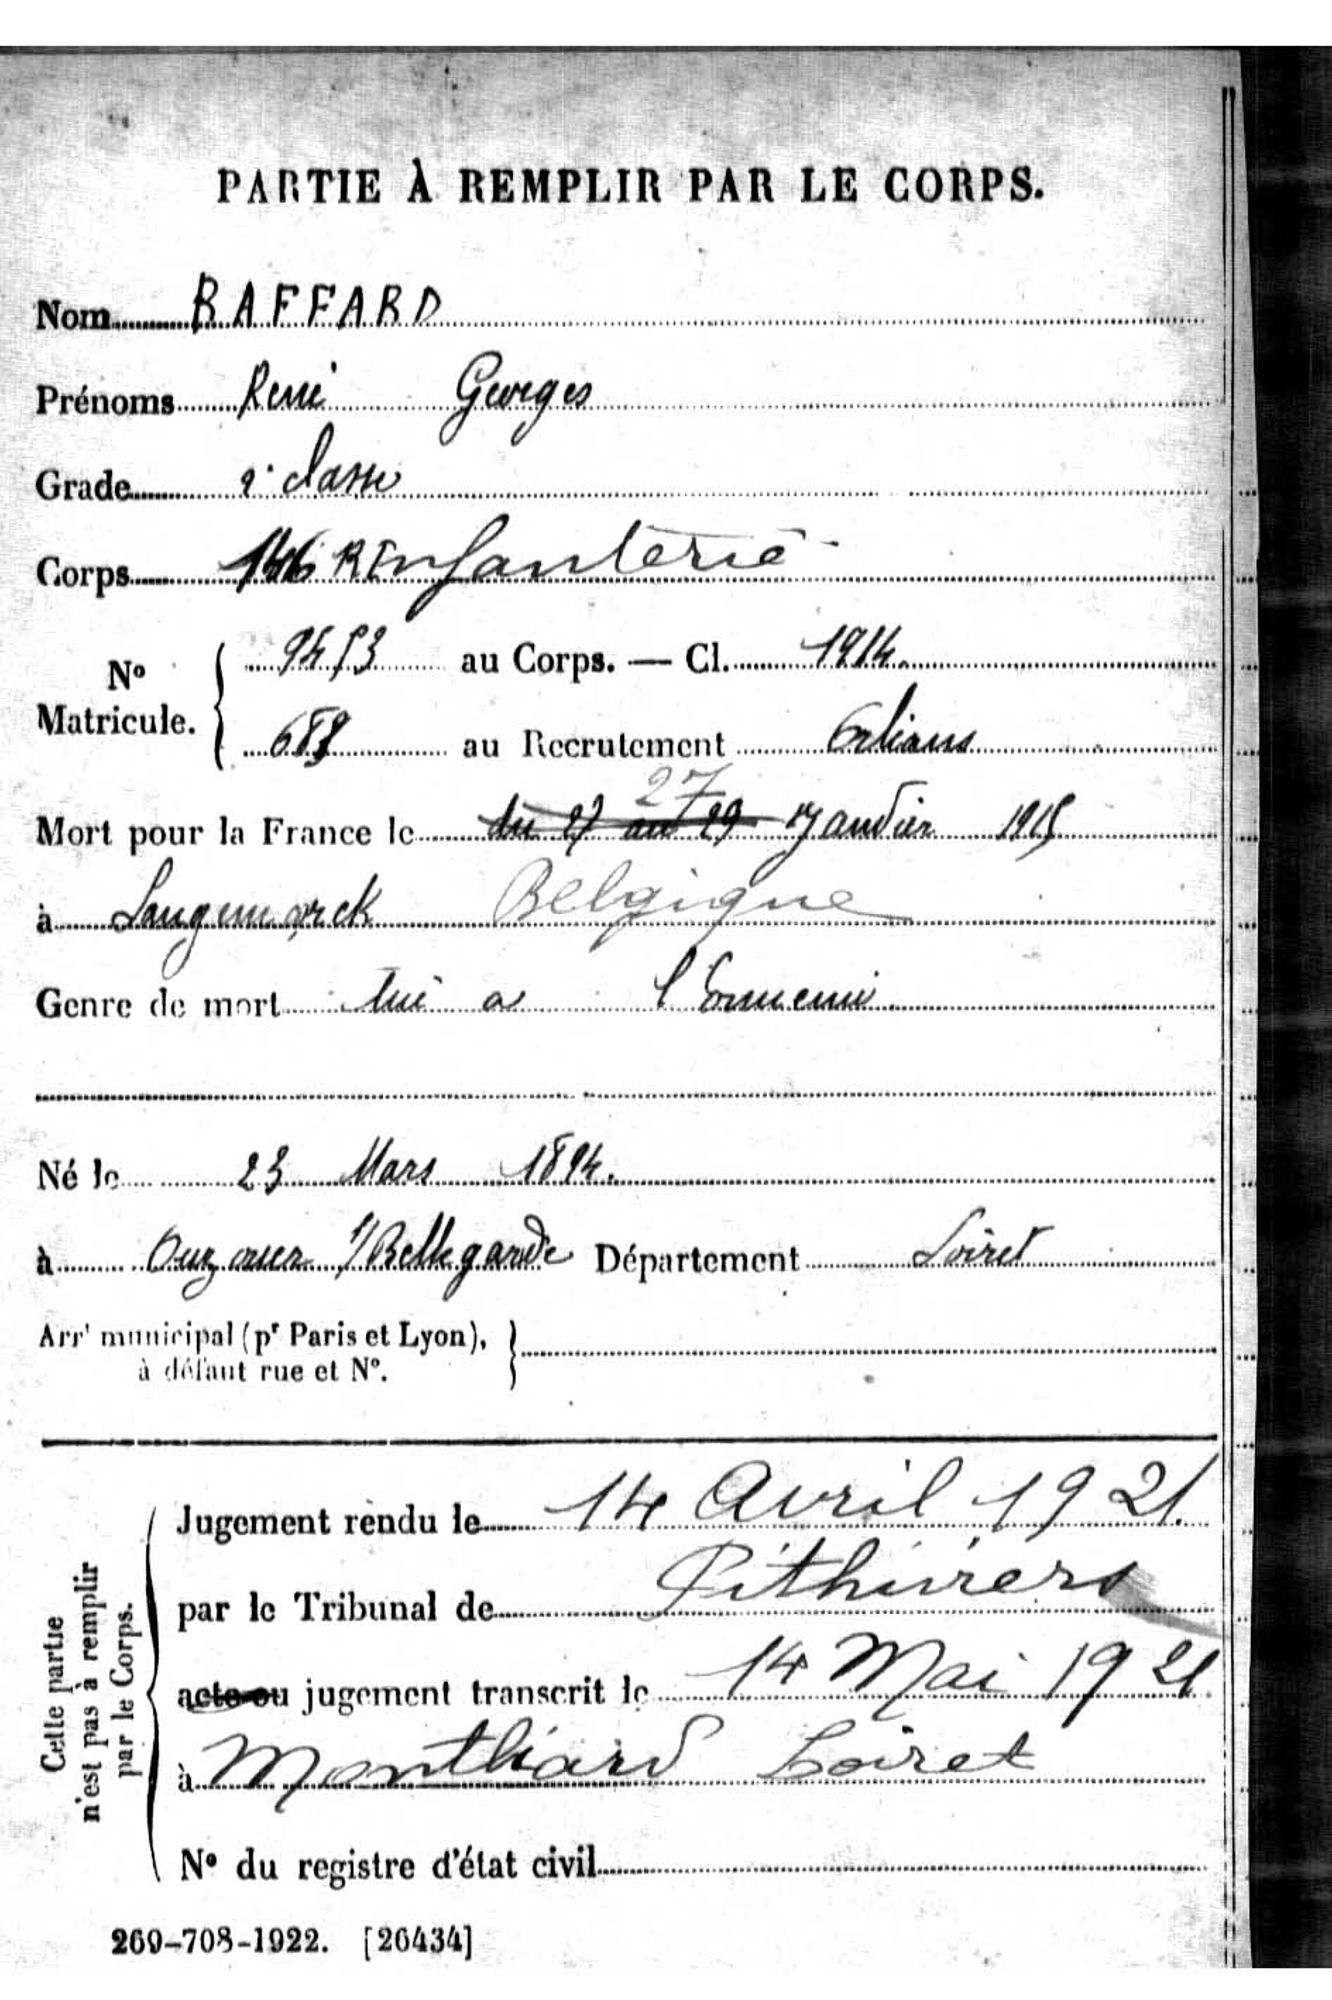 PARTIE À REMPLIR PAR LE CORPS.
Nom BAFFARD
Prénoms René Georges
Grade 2e classe
Corps 146 R Infanterie
No Matricule. 9453 au Corps. — Cl. 1914.
688 au Recrutement Orléans
27
Mort pour la France le du 27 au 29 Janvier 1915
à Langemarck Belgique
Genre de mort tué a l'Ennemi
Né le 23 Mars 1894.
à Ouzouer s/Bellegarde Département Loiret
Arrt municipal (pr Paris et Lyon),
à défaut rue et No.
Cette partie n'est pas à remplir par le Corps.
Jugement rendu le 14 Avril 1921.
par le Tribunal de Pithiviers
acte ou jugement transcrit le 14 Mai 1921
à Montliard Loiret
No du registre d'état civil
269-708-1922. [26434]